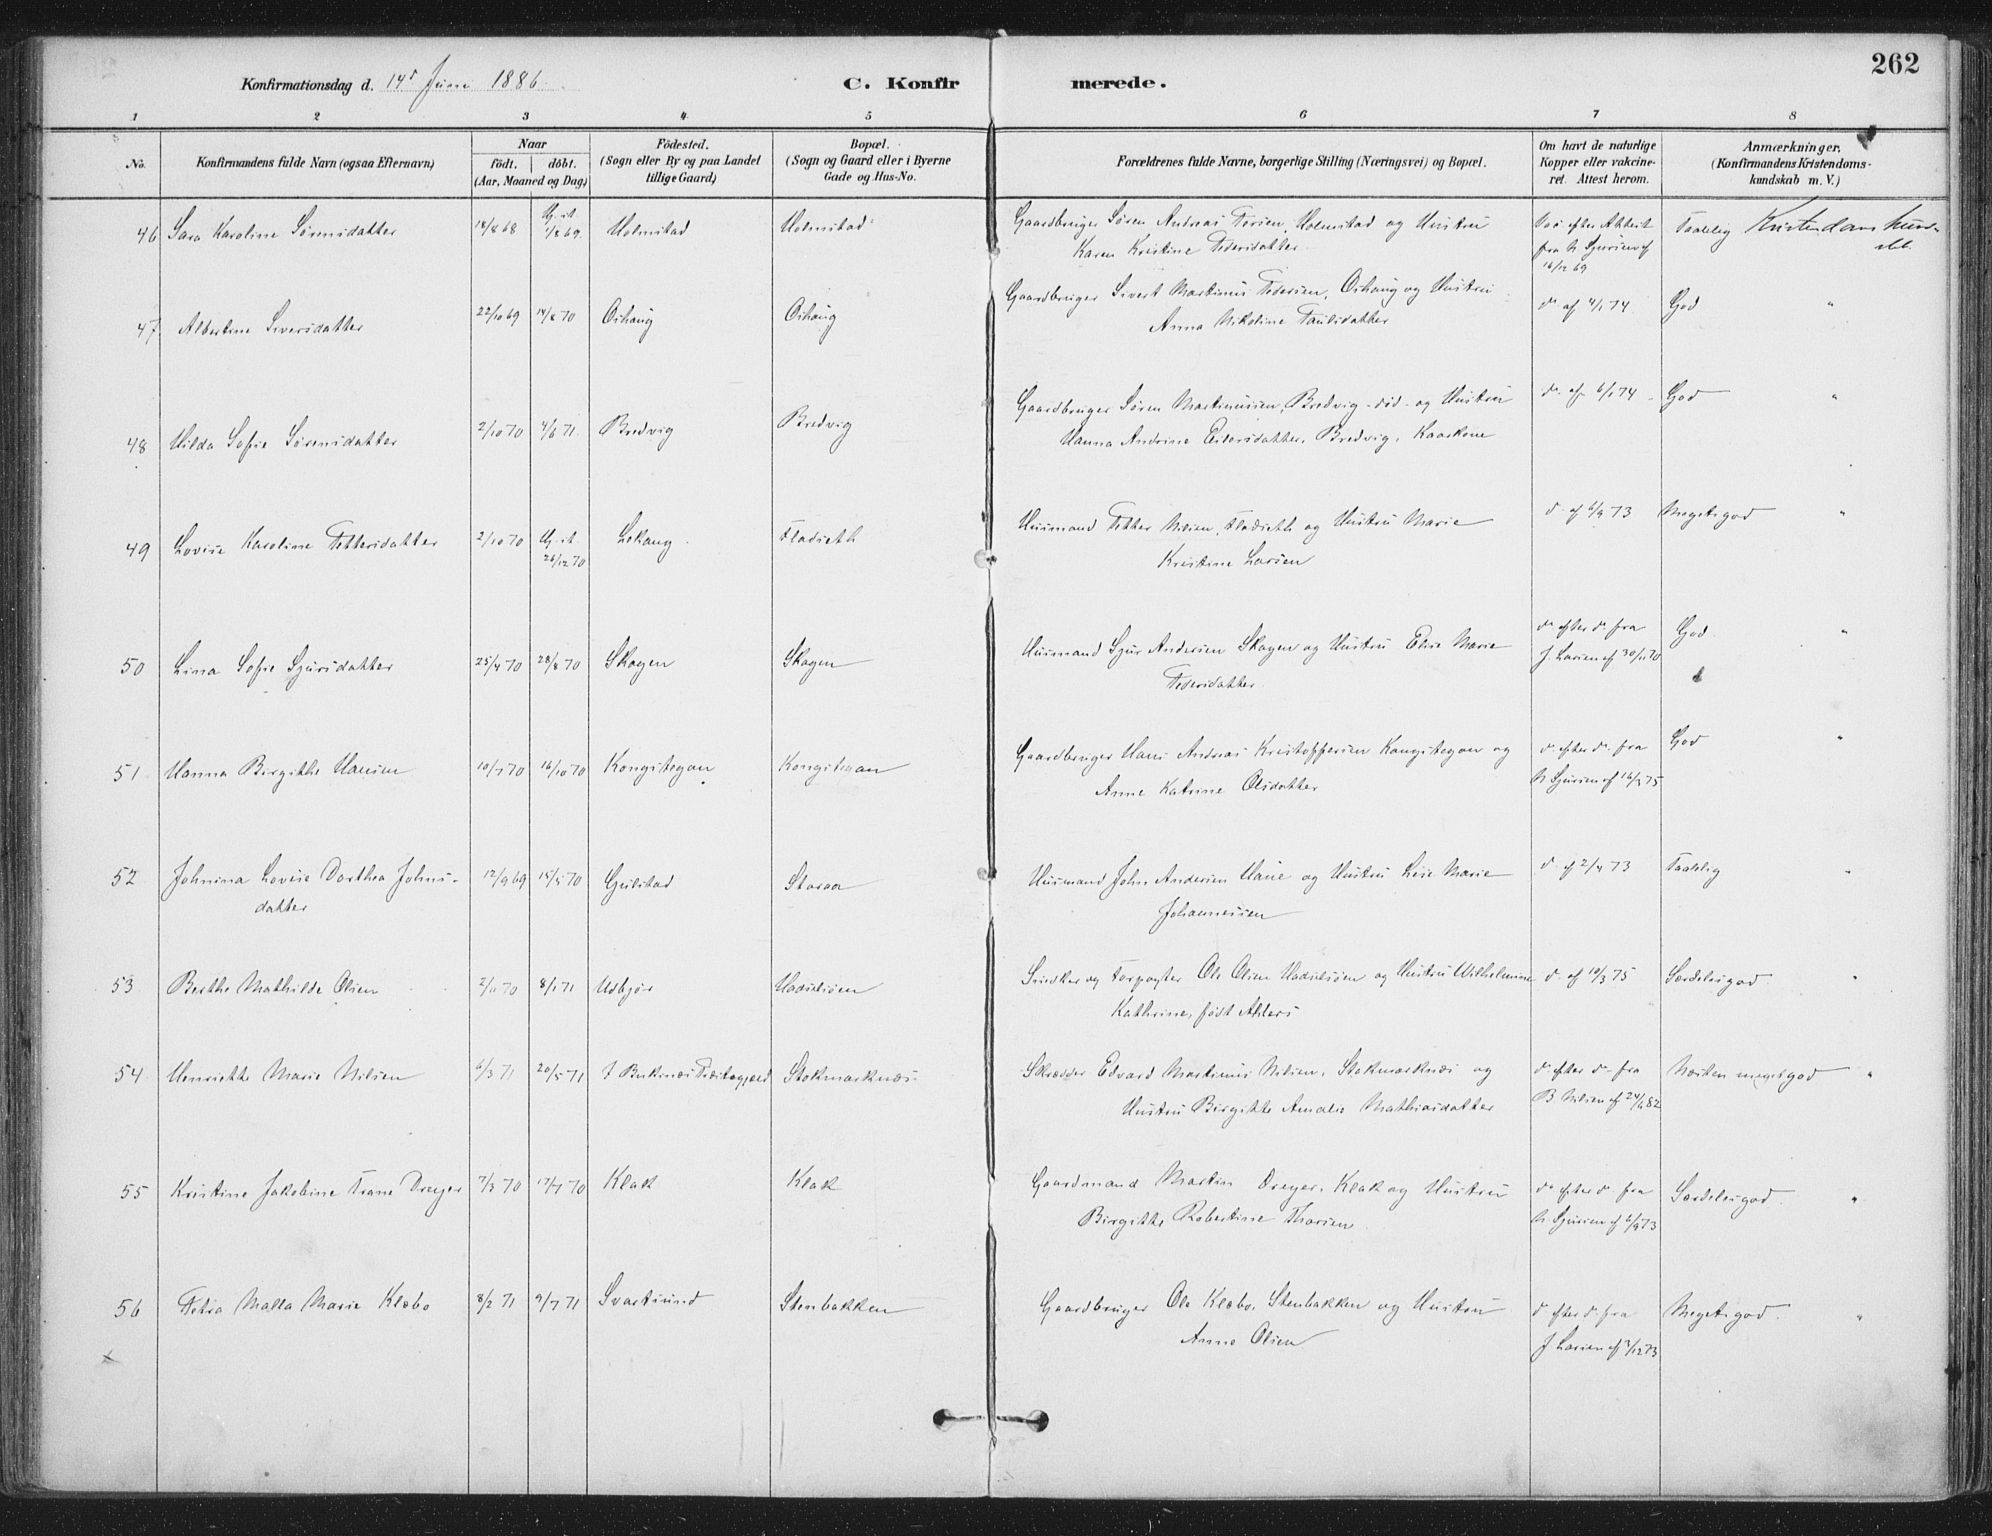 262
Konfirmationsdag d. 14de Juni 1886.
C. Konfirmerede.
1 2 3 4 5 6 7 8
No.
Konfirmandens fulde Navn (ogsaa Efternavn)
Naar
födt. döbt.
(Aar, Maaned og Dag)
Födested.
(Sogn eller By og paa Landet
tillige Gaard)
Bopæl.
(Sogn og Gaard eller i Byerne
Gade og Hus-No.
Forældrenes fulde Navne, borgerlige Stilling (Næringsvei) og Bopæl.
Om havt de naturlige
Kopper eller vakcineret.
Attest herom.
Anmærkninger,
(Konfirmandens Kristendomskundskab
m. V.)
46 Sara Karoline Sørensdatter 18/8 68 Holmstad Holmstad Gaardbruger Søren Andreas Holmstad og Hustru Taalelig Kristendomskundskb
Karen Kristine Pedersdatter fra N Sjursen af
16/12 69
47 Albertine Siversdatter 22/10 69 14/8 70 Oshaug Oshaug Gaardbruger Sivert Martinus Pedersen, Oshaug og Hustru do af 4/1 74 God "
Anna Nikoline Paulsdatter
48 Hilda Sofie Sørensdatter 2/10 70 4/6 71 Bredvig Bredvig Gaardbruger Søren Martinussen, Bredvig - død - og Hustru do af 6/1 74 God "
Hanna Andrine Eilersdatter, Bredvig, Kaarkone
49 Lovise Karoline Pettersdatter 2/10 70 Hj. dt 26/12 70 Lekang Fladseth Husmand Petter Nilsen, Fladseth og Hustru Marie do af 6/9 73 Megetgod "
Kristine Larsen
50 Lina Sofie Sjursdatter 25/4 70 28/8 70 Skagen Skagen Husmand Sjur Andersen Skagen og Hustru Else Marie do efter do fra God "
Pedersdatter J. Larsen af 30/11 70
51 Hanna Birgithe Hansen 10/7 70 16/10 70 Kongstegan Kongstegan Gaardbruger Hans Andreas Kristoffersen Kongstegan og do efter do fra God "
Anne Katrine Olsdatter N Sjursen af 16/3 75
52 Johnina Lovise Dorthea Johnsdatter 12/9 69 15/5 70 Gulstad Storaa Husmand John Andersen og Hustru Lise Marie do af 2/4 73 Taalelig "
Johannessen
53 Berthe Mathilde Olsen 2/11 70 8/1 71 Udbjør Hadseløen Snedker og Forpagter Ole Olsen Hadseløen og Hustru Wilhelmine do af 10/3 75 Særdelesgod "
Kathrine, født Ahlers
54 Henriette Marie Nilsen 6/3 71 20/5 71 Stokmarknæs Skrædder Edvard Martinus Nilsen, Stokmarknæs og do efter do fra Næsten megetgod "
Hustru Birgitte Amalie Mathiasdatter B Nilsen af 24/6 82
55 Kristine Jakobine Trane Dreyer 7/3 70 17/7 70 Klak Klak Gaardmand Martin Dreyer, Klak og Hustru do efter do fra Særdelesgod "
Birgitte Robertine Thorsen N Sjursen af 6/9 73
56 Petra Malla Marie Klæbo 8/2 71 9/7 71 Svartsund Stenbakken Gaardbruger Ole Klæbo, Stenbakken og Hustru do efter do fra Megetgod "
Anne Olsen J Larsen af 7/12 73